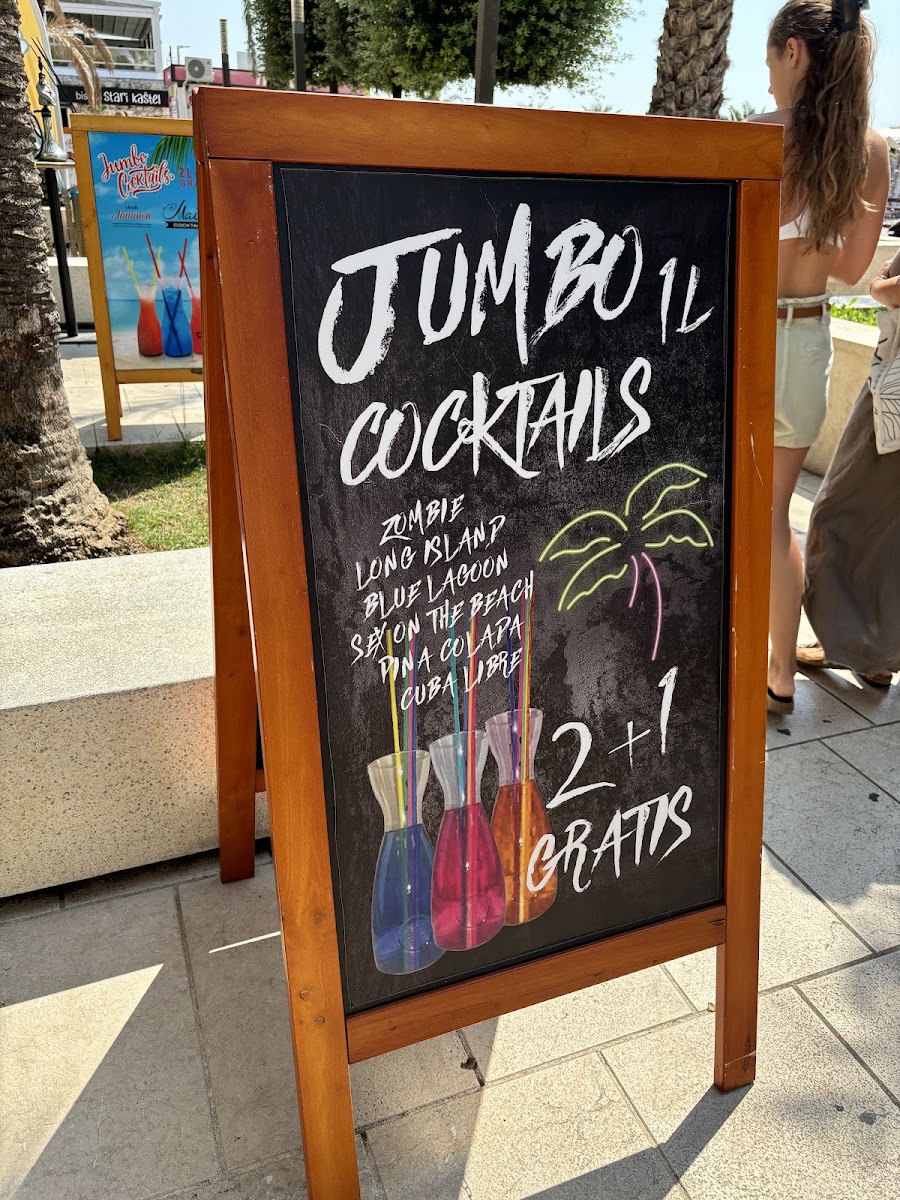 JUMBO 1L
COCKTAILS
ZOMBIE
LONG ISLAND
BLUE LAGOON
SEX ON THE BEACH
PINA COLADA
CUBA LIBRE
2+1
GRATIS
Jumbo
Cocktails
2L
club
Jamaica
COCKTA
stari kaštel